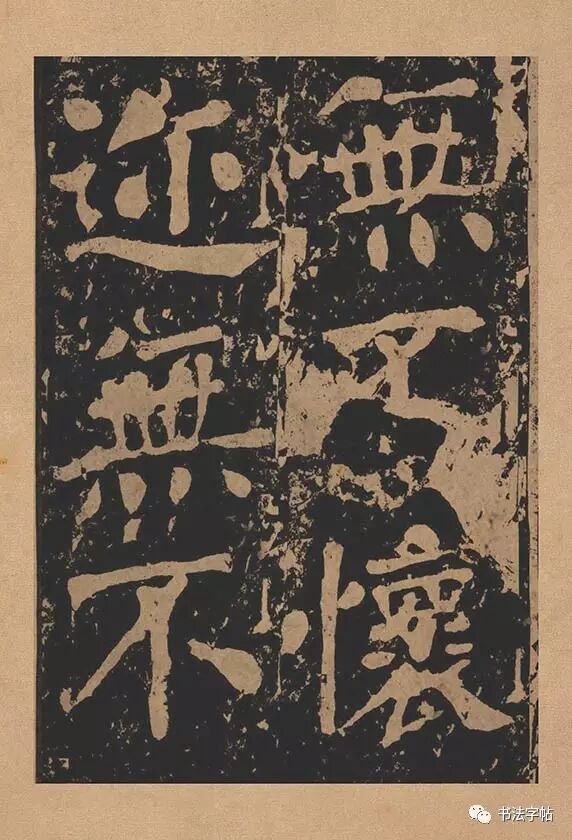 無不懷
迩無不
书法字帖